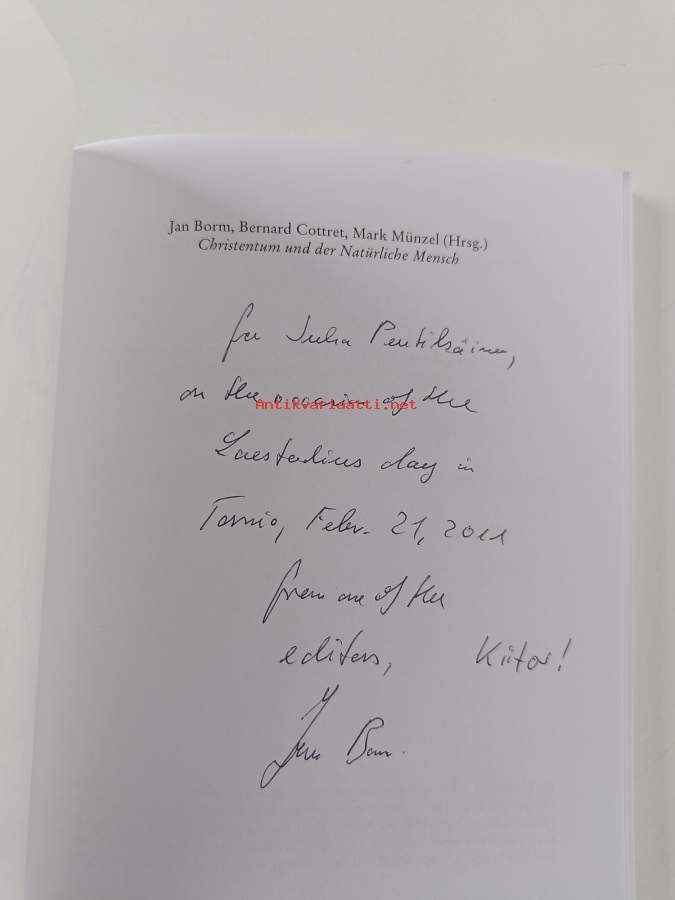 Jan Borm, Bernard Cottret, Mark Münzel (Hrsg.)
Christentum und der Natürliche Mensch
for Juha Pentikäinen,
on the occasion of the
Antikvariaatti.net
Laestadius day in
Tornio, Febr. 21, 2011
from one of the
editors, Kiitos!
Jan Borm